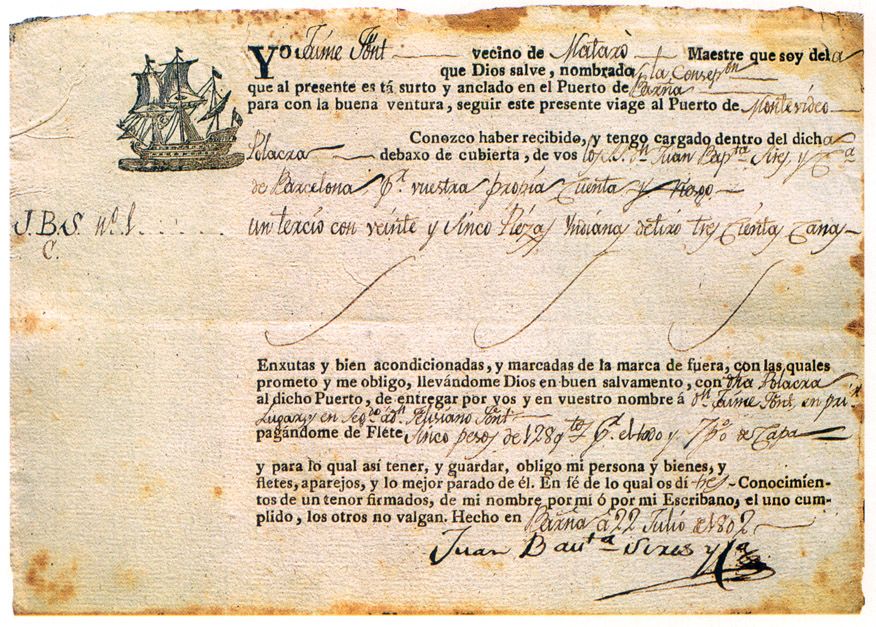 Yo Jaime Pont vecino de Mataró Maestre que soy dela
que Dios salve, nombrada la Consepon
que al presente es tá surto y anclado en el Puerto de Barña
para con la buena ventura, seguir este presente viage al Puerto de Montevideo
Conozco haber recibido, y tengo cargado dentro del dicha
Polacra debaxo de cubierta, de vos los Srs. Dn Juan Bapta Sires, y Ca
de Barcelona Pr. vuestra propia Cuenta y riesgo
J. B. S. nº. 1. un tercio con veinte y sinco Piezas Yndiana detiro tres Cienta Canas
C.
Enxutas y bien acondicionadas, y marcadas de la marca de fuera, con las quales
prometo y me obligo, llevándome Dios en buen salvamento, con dha Polacra
al dicho Puerto, de entregar por vos y en vuestro nombre á Dn. Jaime Pont, en pri
Lugar, y en Segdo á Dn. Felisiano Pont
pagándome de Flete, sinco pesos de 128 qtos Pr. el todo y 7 pº de Capa
y para lo qual así tener, y guardar, obligo mi persona y bienes, y
fletes, aparejos, y lo mejor parado de él. En fé de lo qual os dí tres Conocimien-
tos de un tenor firmados, de mi nombre por mí ó por mi Escribano, el uno cum-
plido, los otros no valgan. Hecho en Barña á 22 Julio de 1802
Juan Bauta Sires y Ca